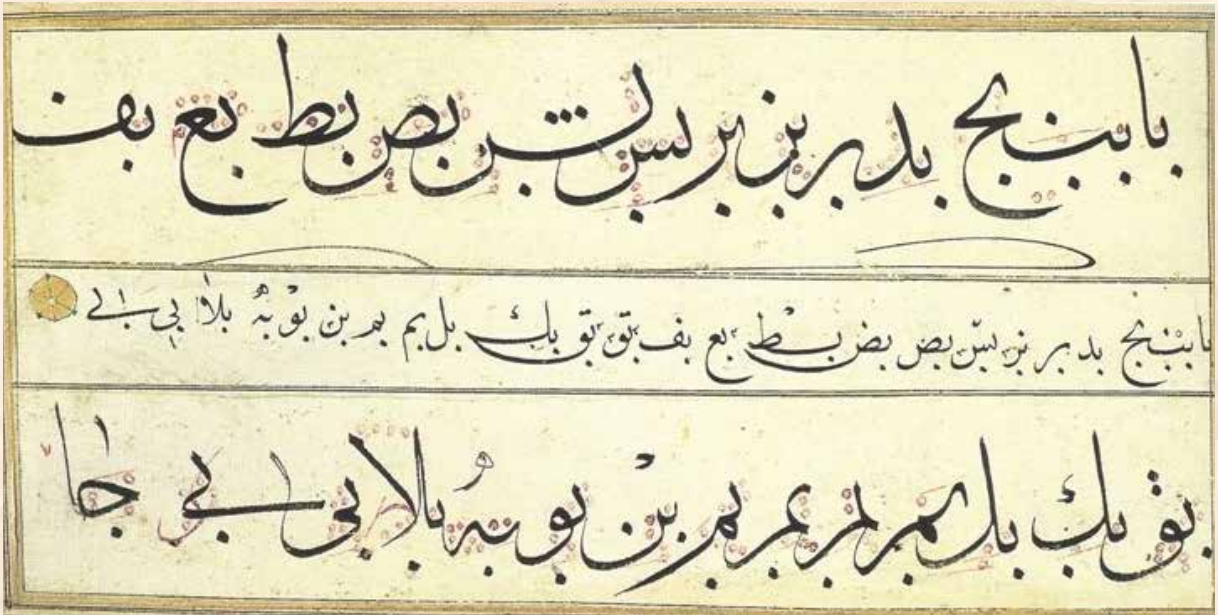 با بب بج بد بر بز بر بس بش بص بط بع بف
با بب بج بد بر بز بس بص بض بط بع بف بق بق بك بل بم بم بن بو به بلا بي بے
بق بك بل بم بمر بمر بم بن بو به به بلا بي بے جا